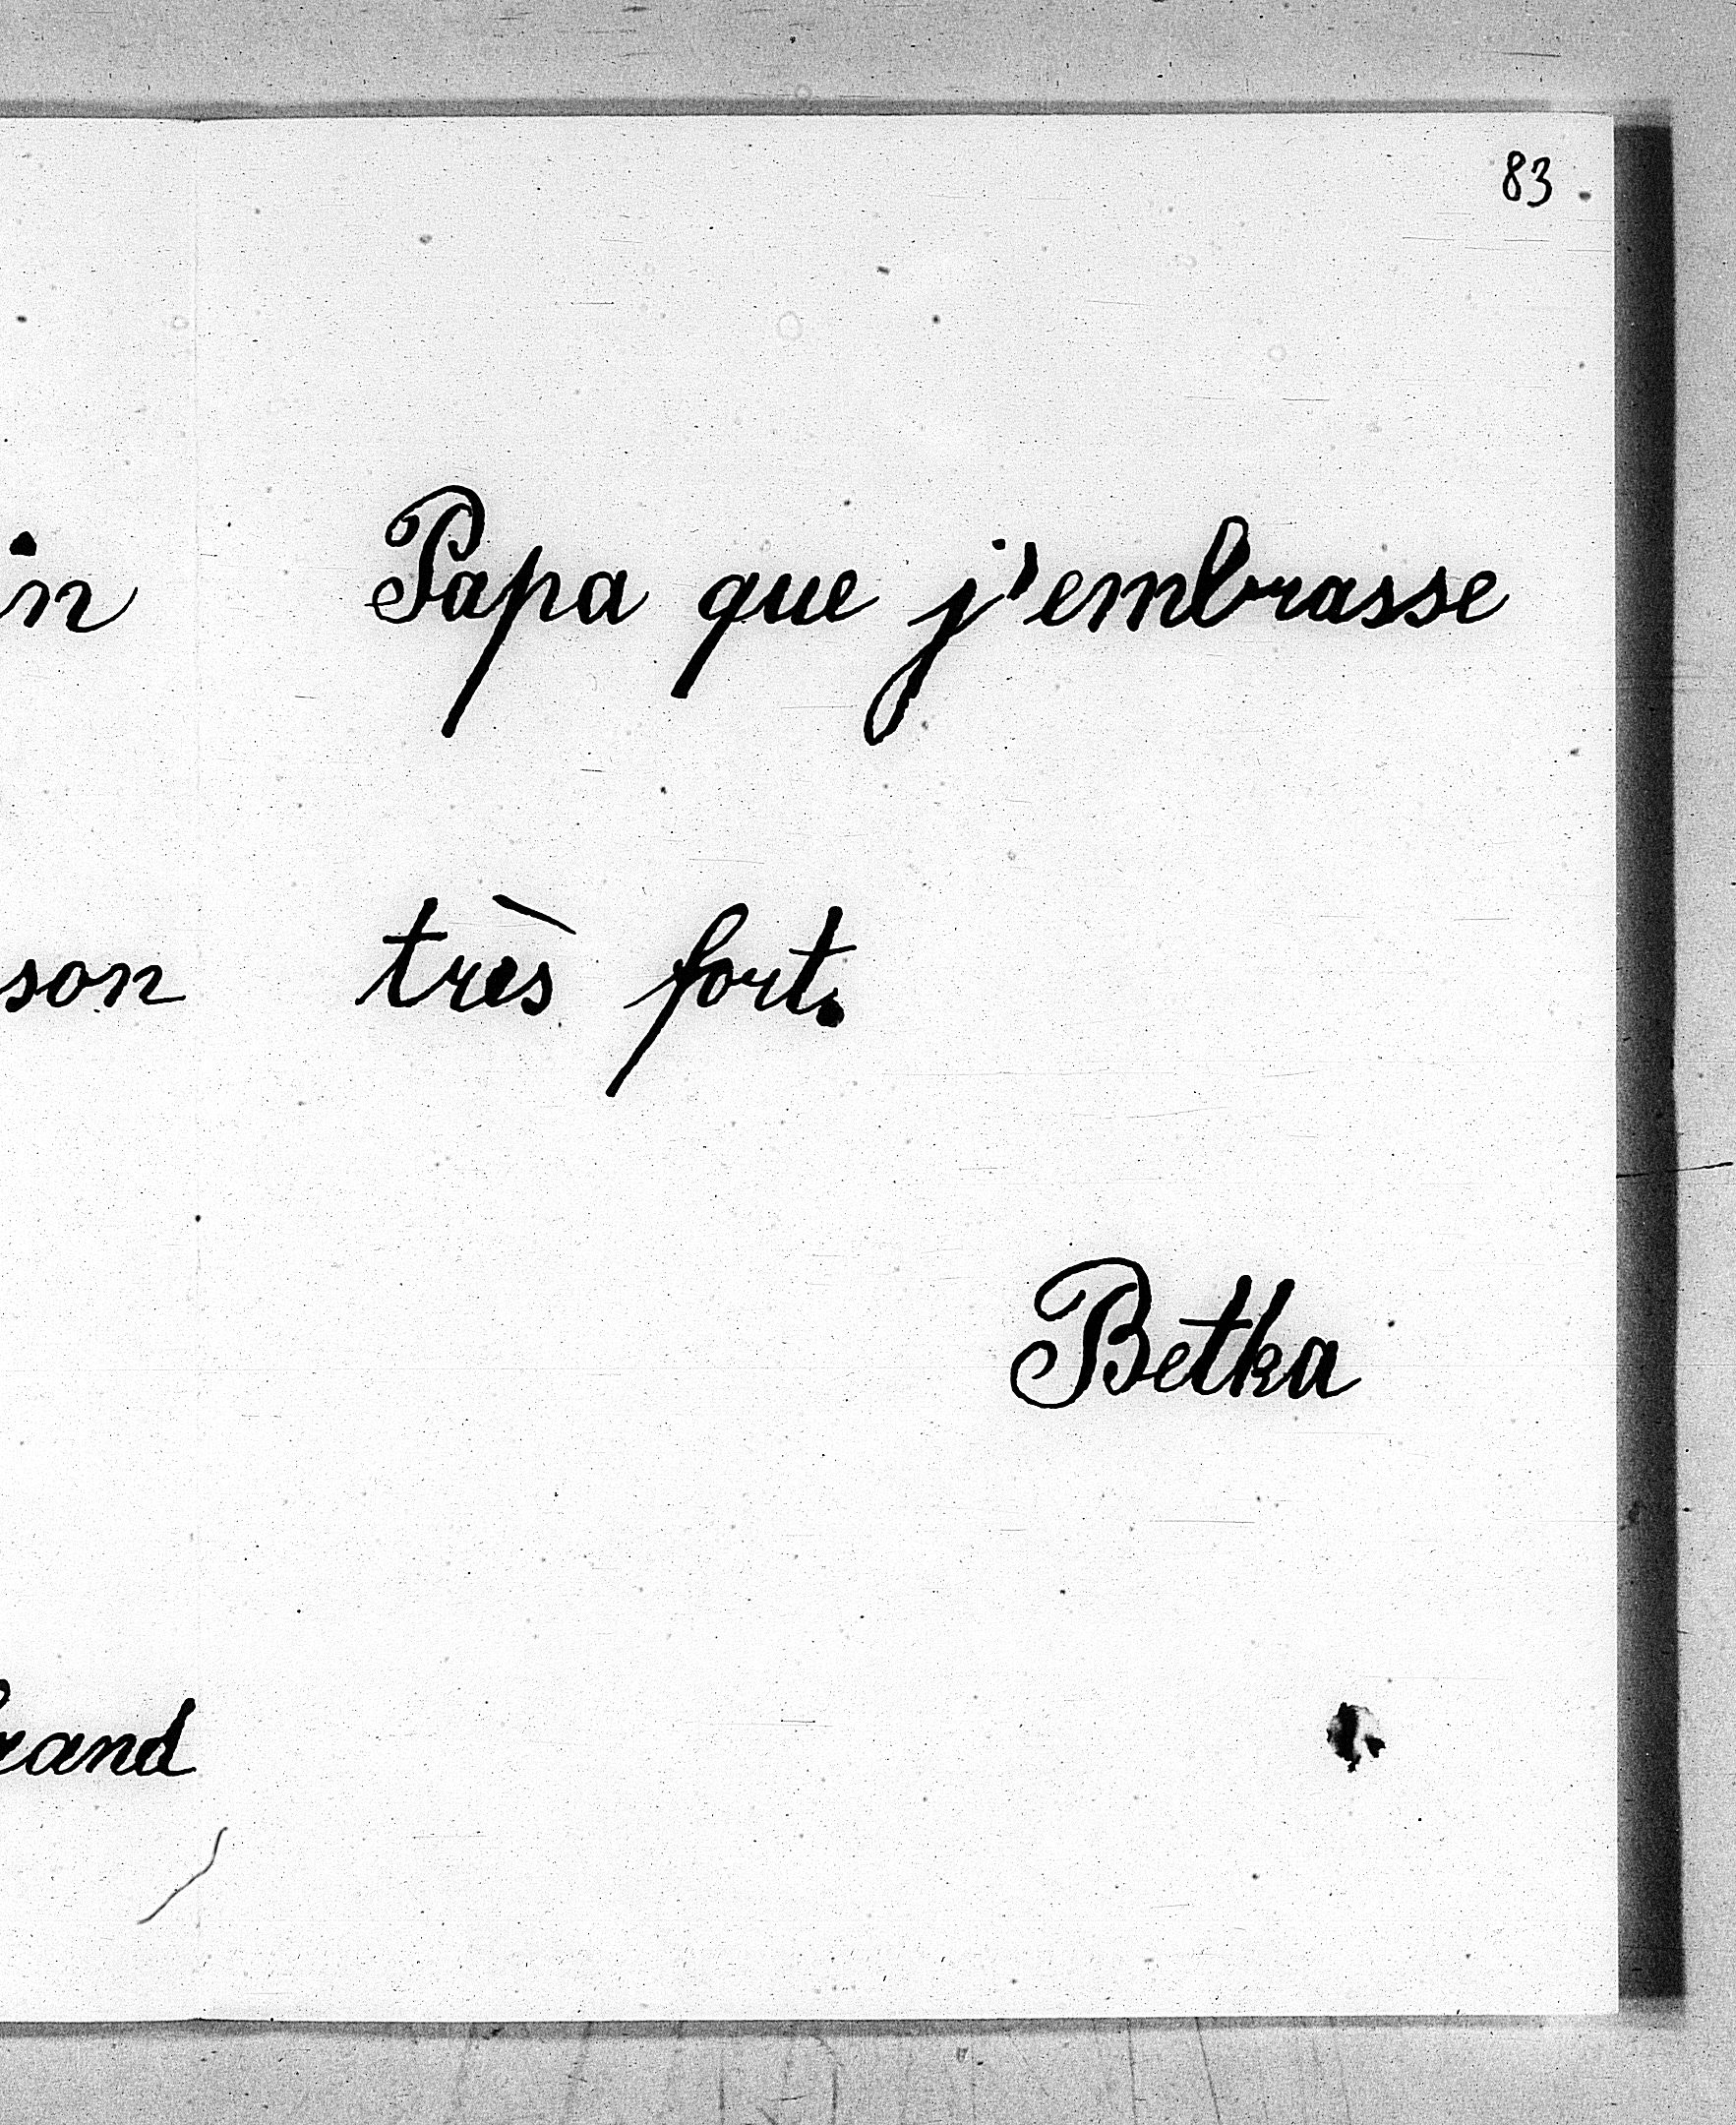 83
in
son
rand
Papa que j'embrasse
très fort.
Betka